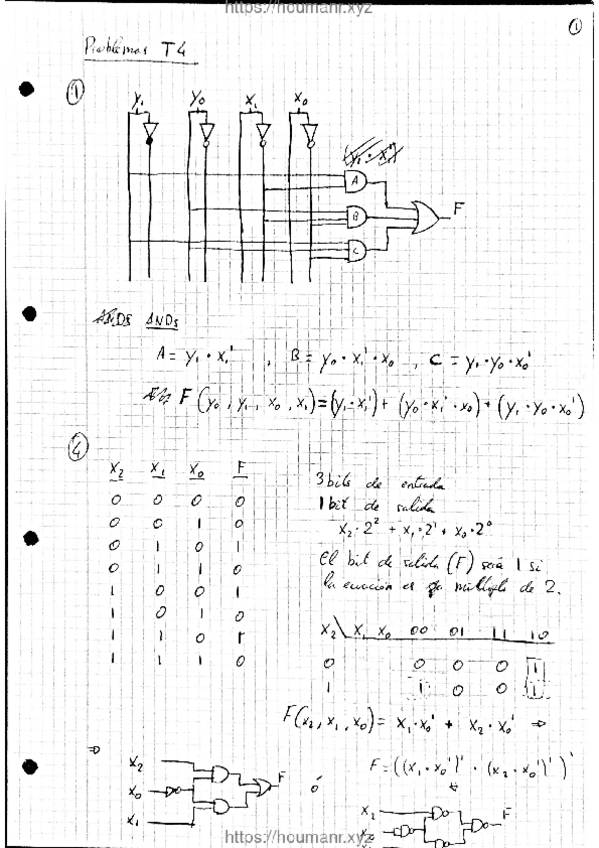 https://houmanr.xyz
1
Problemas T4
1
y₁ y₀ x₁ x₀
y₁ · x₁'
A
B
C
F
ANDs
A = y₁ · x₁' , B = y₀ · x₁' · x₀ , C = y₁ · y₀ · x₀'
F (y₀, y₁, x₀, x₁) = (y₁ · x₁') + (y₀ · x₁' · x₀) + (y₁ · y₀ · x₀')
4
x₂ x₁ x₀ F
0 0 0 0
0 0 1 0
0 1 0 1
0 1 1 0
1 0 0 1
1 0 1 0
1 1 0 1
1 1 1 0
3 bits de entrada
1 bit de salida
x₂ · 2² + x₁ · 2¹ + x₀ · 2⁰
El bit de salida (F) será 1 si
la ecuación es múltiplo de 2.
x₂ \ x₁ x₀ 00 01 11 10
0 0 0 0 1
1 1 0 0 1
F(x₂, x₁, x₀) = x₁ · x₀' + x₂ · x₀' ⇒
⇒ F = ((x₁ · x₀')' · (x₂ · x₀')')'
x₂
x₀
x₁
F
ó
x₂
x₀
x₁
F
https://houmanr.xyz